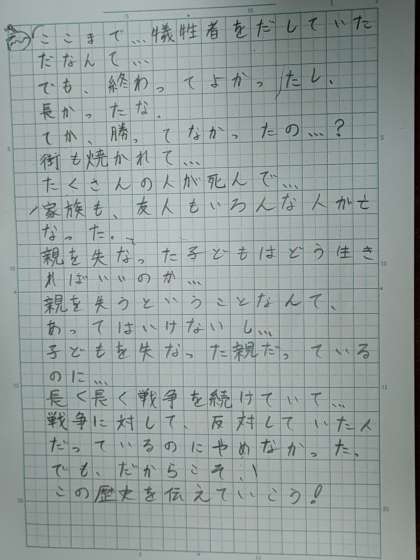 ここまで…犠牲者をだしていた
だなんて…
でも、終わってよかったし、
長かったな。
てか、勝ってなかったの…？
街も焼かれて…
たくさんの人が死んで…
家族も、友人もいろんな人が亡
なった。
親を失なった子どもはどう生き
ればいいのか…
親を失うということなんて、
あってはいけないし…
子どもを失なった親だっている
のに…
長く長く戦争を続けていて…
戦争に対して、反対していた人
だっているのにやめなかった。
でも、だからこそ、！
この歴史を伝えていこう！